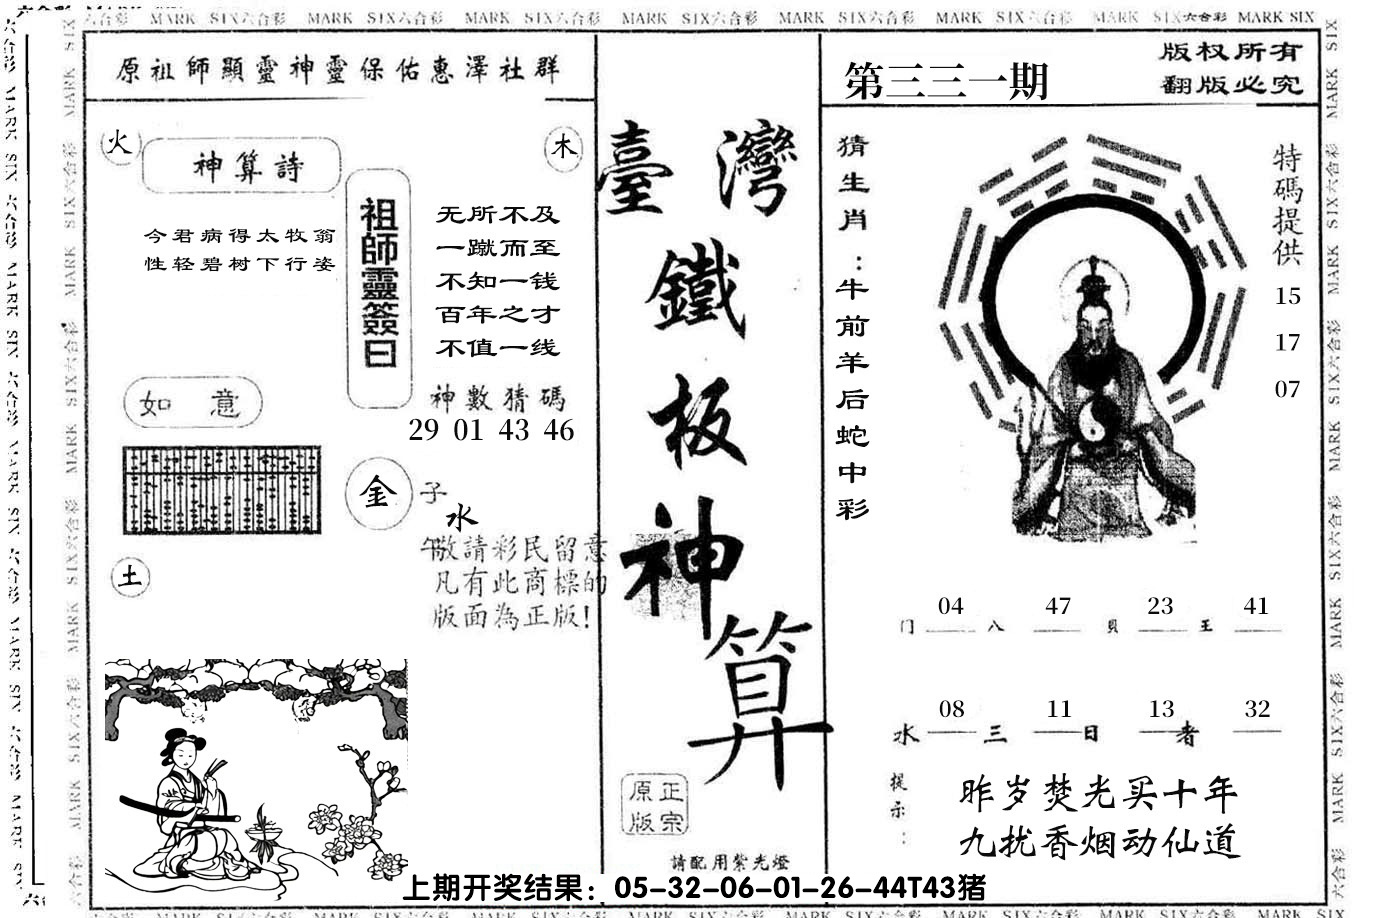 MARK SIX六合彩 MARK SIX六合彩 MARK SIX六合彩 MARK SIX六合彩 MARK SIX六合彩 MARK SIX六合彩 MARK SIX六合彩 MARK SIX
原祖師顯靈神靈保佑惠澤社群
火
神算詩
木
今君病得太牧翁
性轻碧树下行姿
祖師靈簽曰
无所不及
一蹴而至
不知一钱
百年之才
不值一线
如意
神數猜碼
29 01 43 46
金
子
水
午
敬請彩民留意
凡有此商標的
版面為正版!
土
臺灣
鐵
板
神
算
正宗
原版
請配用紫光燈
第三三一期
版权所有
翻版必究
猜生肖:牛前羊后蛇中彩
特碼提供
15
17
07
门 04 八 47 貝 23 王 41
水 08 三 11 日 13 者 32
提示:
昨岁焚光买十年
九扰香烟动仙道
上期开奖结果：05-32-06-01-26-44T43猪